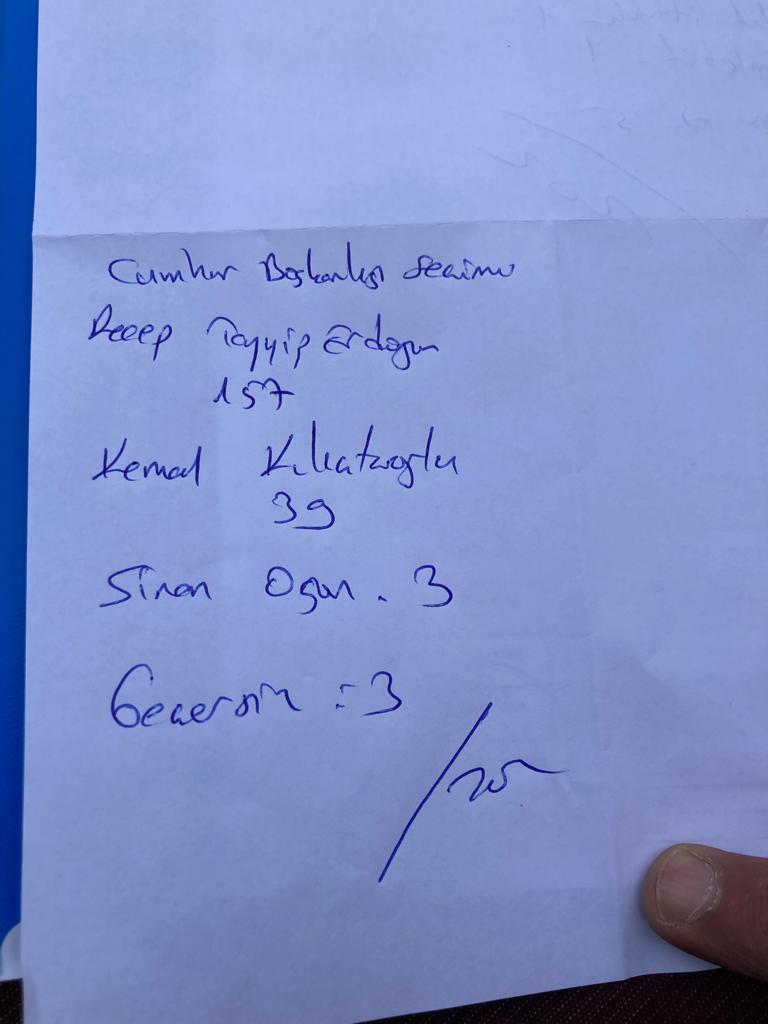 Cumhur Başkanlığı Secimi
Recep Tayyip Erdogan
157
Kemal Kılıcataroglu
39
Sinan Ogan . 3
Gecersiz : 3